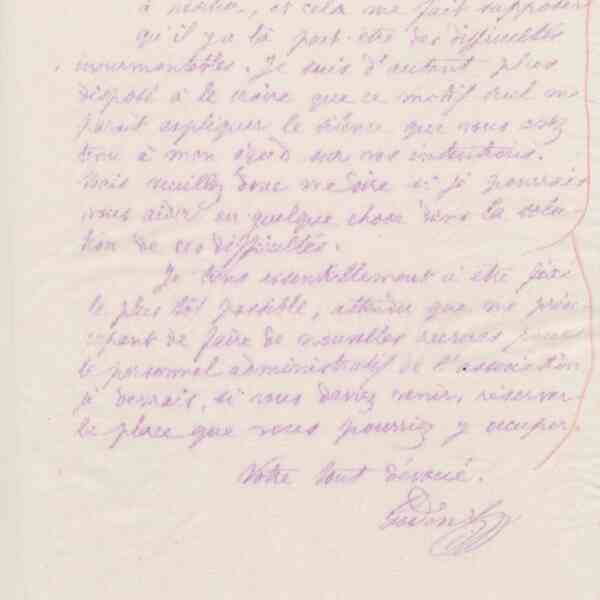 à
, et cela me fait supposer
qu'il y a là peut-être des difficultés
insurmontables. Je suis d'autant plus
disposé à le croire que ce motif seul me
parait expliquer le silence que vous avez
tenu à mon égard sur vos intentions.
Mais veuillez donc me dire si je pourrais
vous aider en quelque chose dans la solu
tion de ces difficultés.
Je tiens essentiellement à être fixé
le plus tôt possible, attendu que me préoc
cupant de faire de nouvelles recrues pour
le personnel administratif de l'association
je devrais, si vous deviez venir, réserver
la place que vous pourriez y occuper.
Votre tout dévoué.
Godin